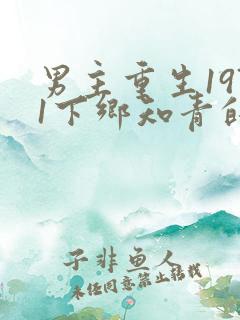 男主重生19
1下乡知青的
子非鱼人
未经同意禁止转载